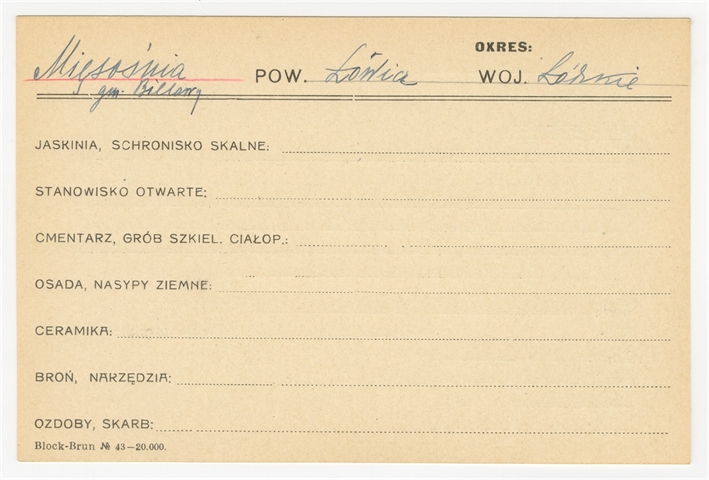 OKRES:
Mięsośnia POW. Łowicz WOJ. Łódzkie
gm. Bielawy
JASKINIA, SCHRONISKO SKALNE:
STANOWISKO OTWARTE:
CMENTARZ, GRÓB SZKIEL. CIAŁOP.:
OSADA, NASYPY ZIEMNE:
CERAMIKA:
BROŃ, NARZĘDZIA:
OZDOBY, SKARB:
Block-Brun № 43—20.000.